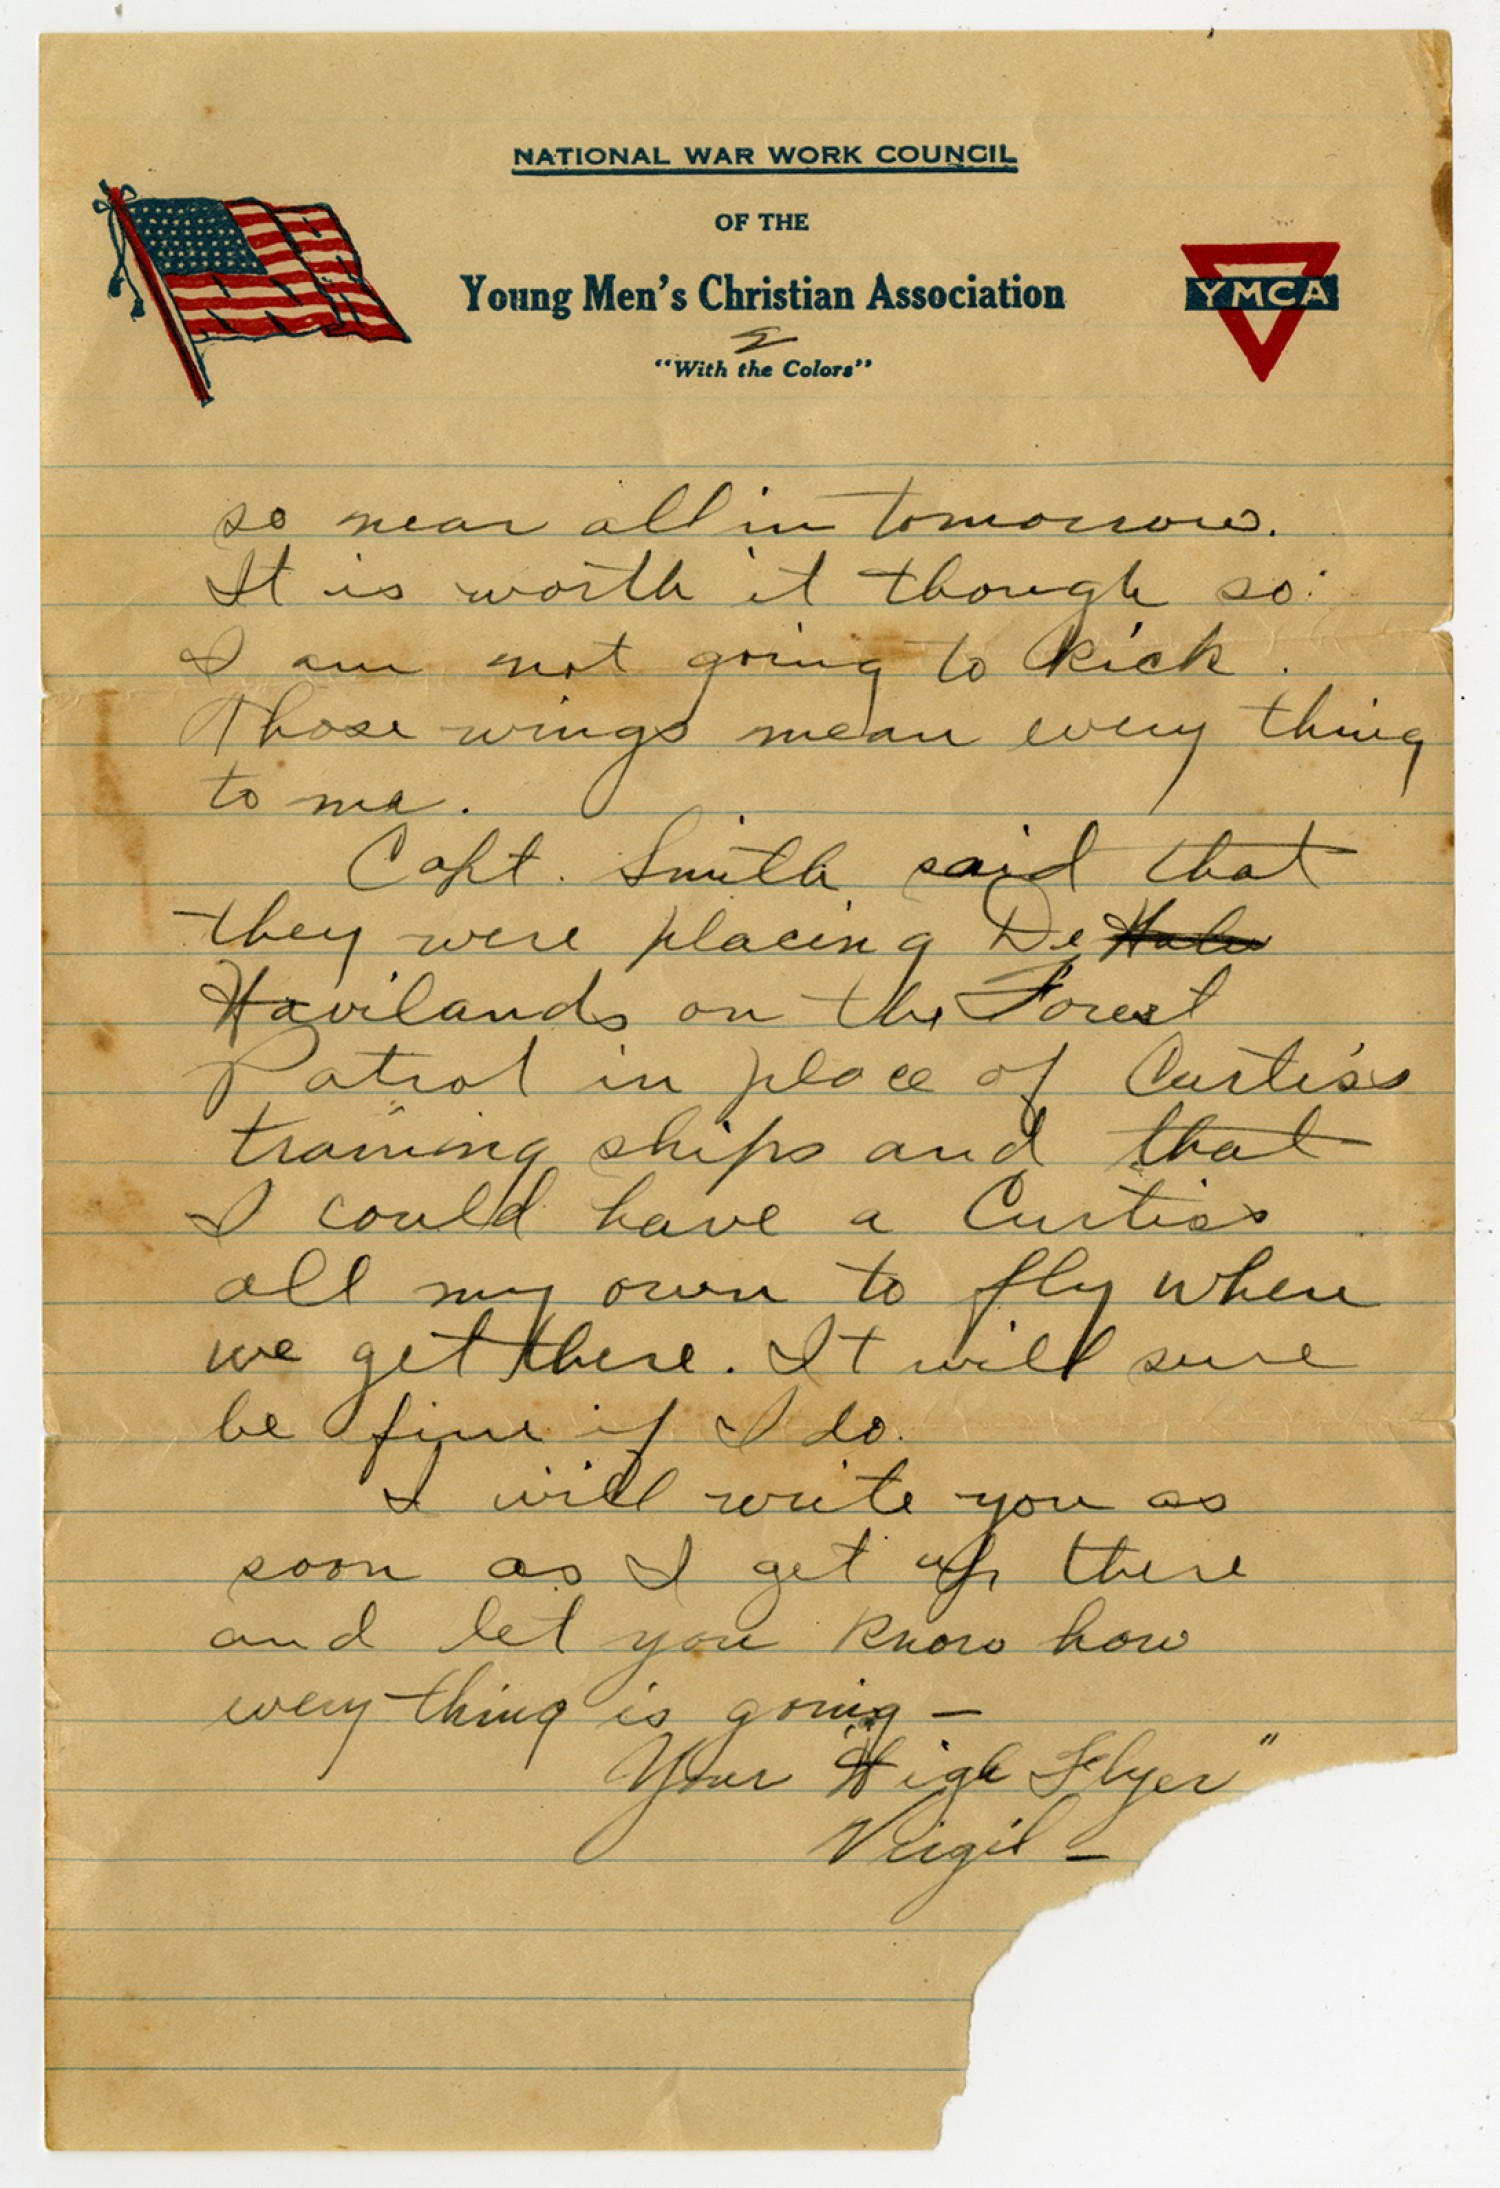 NATIONAL WAR WORK COUNCIL
OF THE
Young Men's Christian Association
YMCA
2
"With the Colors"
so near all in tomorrow.
It is worth it though so
I am not going to kick.
Those wings mean every thing
to me.
Capt. Smith said that
they were placing De
Havilands on the Forest
Patrol in place of Curtiss
training ships and that
I could have a Curtiss
all my own to fly when
we get there. It will sure
be fine if I do.
I will write you as
soon as I get up there
and let you know how
everything is going —
Your "High Flyer"
Virgil —